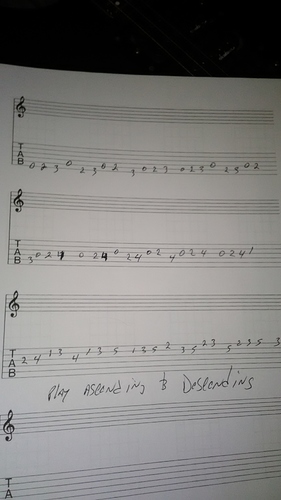 TAB 0 2 3 0 2 3 0 2 3 0 2 3 0 2 3 0 2 5 0 2
TAB 3 0 2 4 0 2 4 0 2 4 0 2 4 0 2 4 0 2 4 1
TAB 2 4 1 3 4 1 3 5 1 3 5 2 3 5 2 3 5 2 3 5 3
Play Ascending & Descending
TA